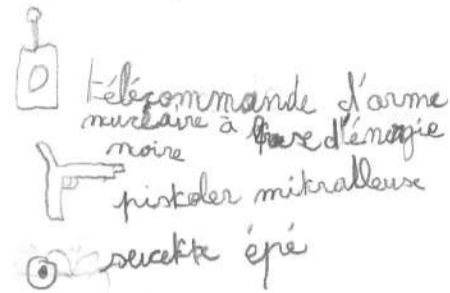 télécommande d'arme
nucléaire à base d'énergie
noire
pistoler mitralleuse
sucette épé